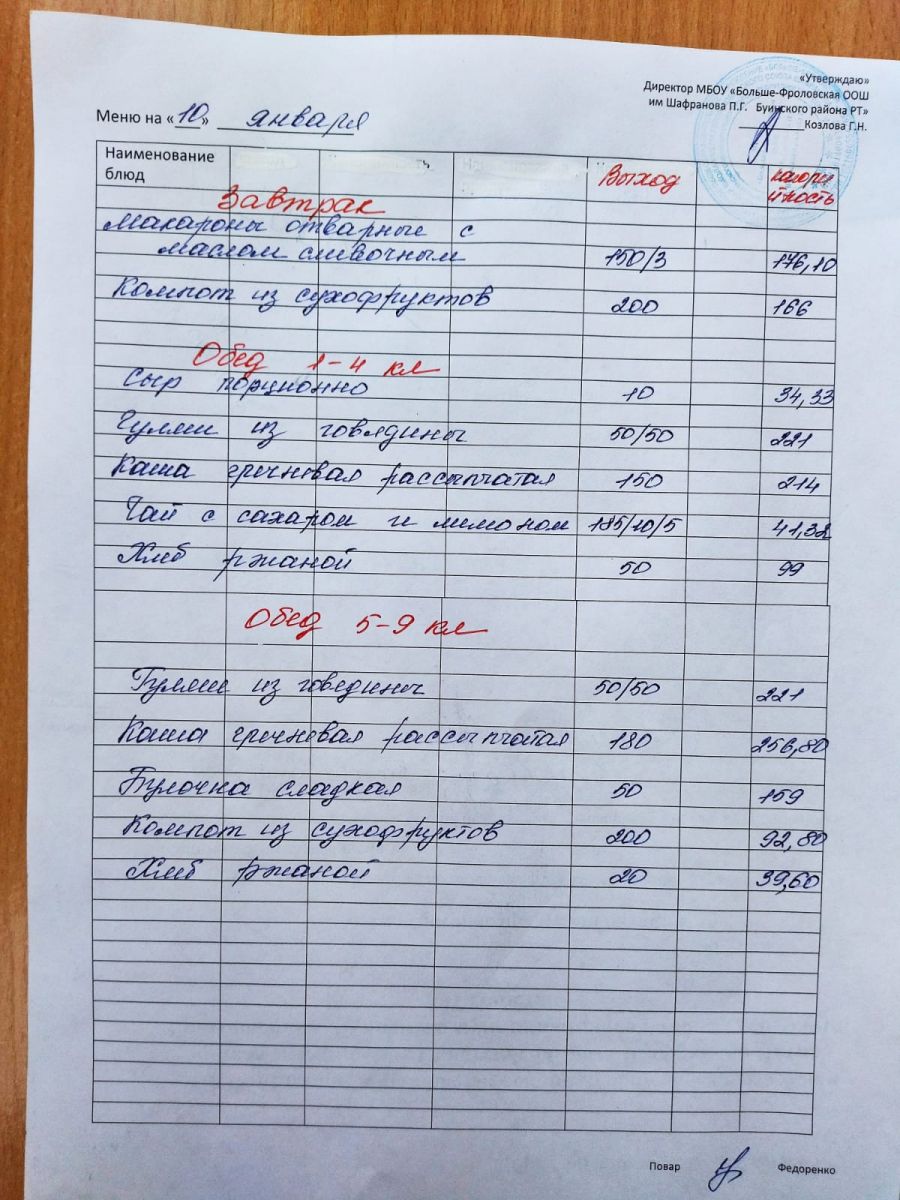 «Утверждаю»
Директор МБОУ «Больше-Фроловская ООШ
им Шафранова П.Г. Буинского района РТ»
Козлова Г.Н.
Меню на «10» января
Наименование блюд Выход калорийность
Завтрак
Макароны отварные с
маслом сливочным 150/3 176,10
Компот из сухофруктов 200 166
Обед 1-4 кл
Сыр порционно 10 34,33
Гуляш из говядины 50/50 221
Каша гречневая рассыпчатая 150 214
Чай с сахаром и лимоном 185/10/5 41,32
Хлеб ржаной 50 99
Обед 5-9 кл
Гуляш из говядины 50/50 221
Каша гречневая рассыпчатая 180 256,80
Булочка сладкая 50 159
Компот из сухофруктов 200 92,80
Хлеб ржаной 20 39,60
Повар Федоренко